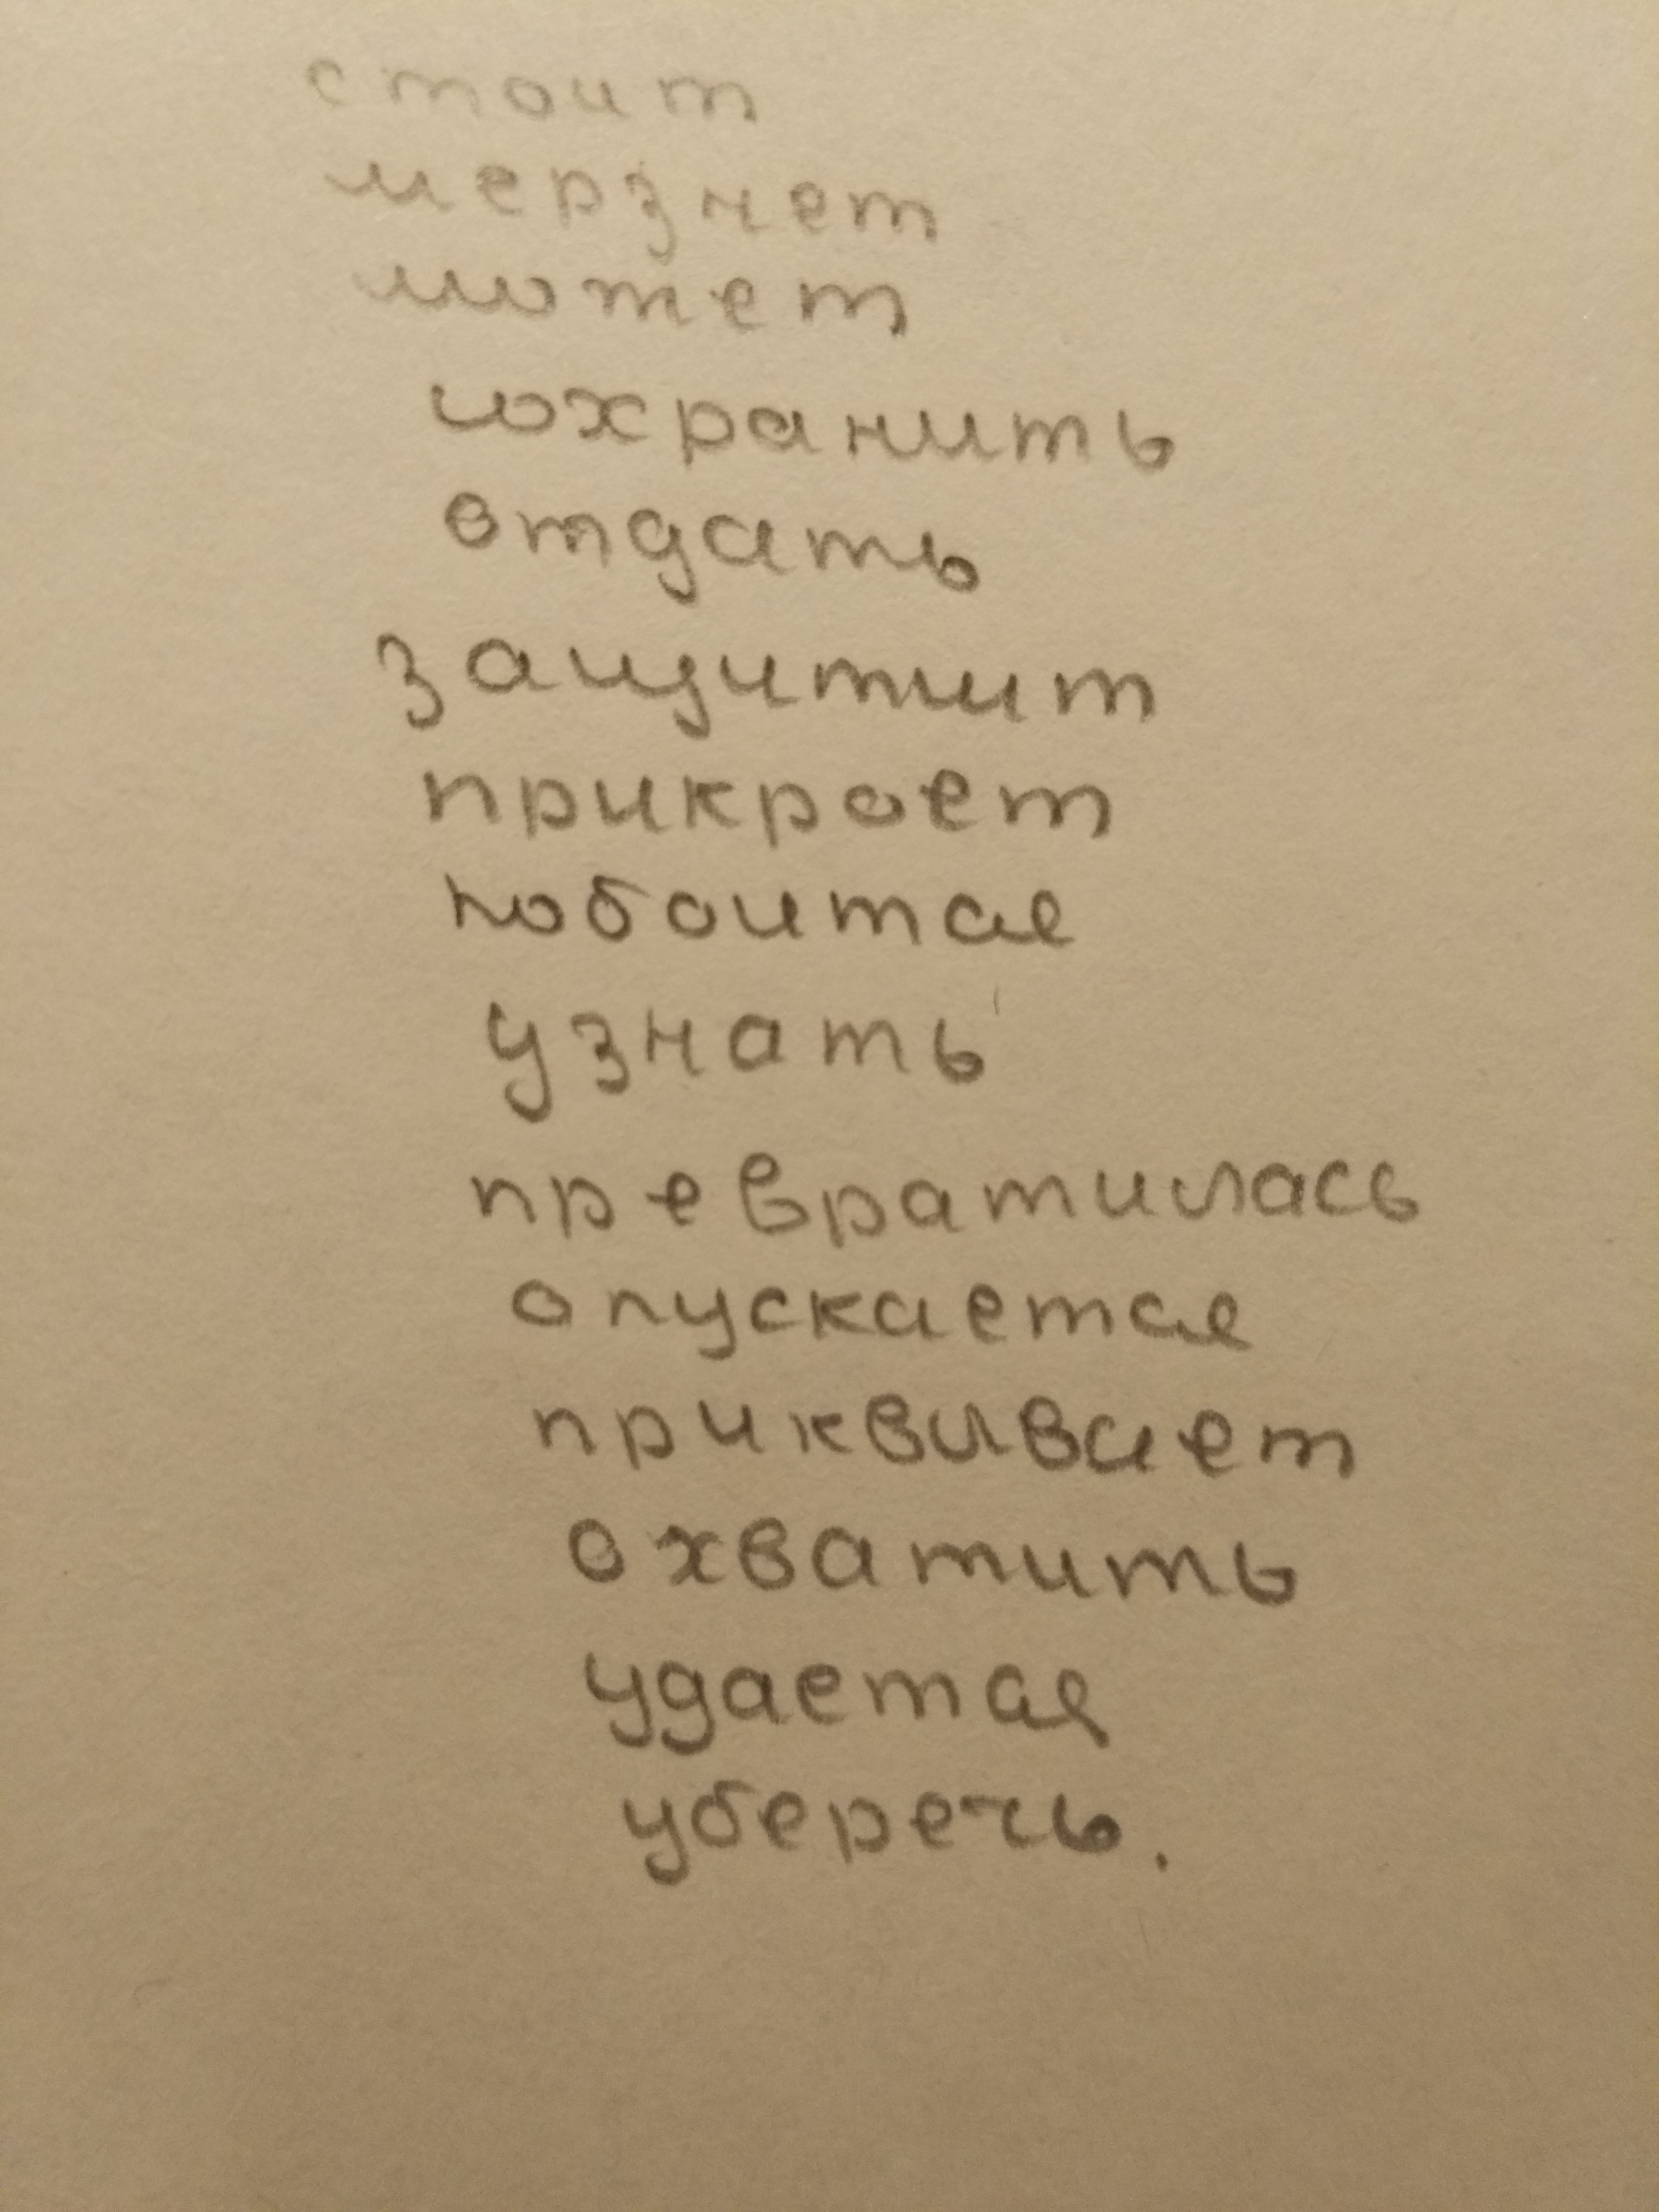 стоит
мерзнет
может
сохранить
отдать
защитит
прикроет
побоится
узнать
превратилась
опускается
приквывает
охватить
удается
уберечь.